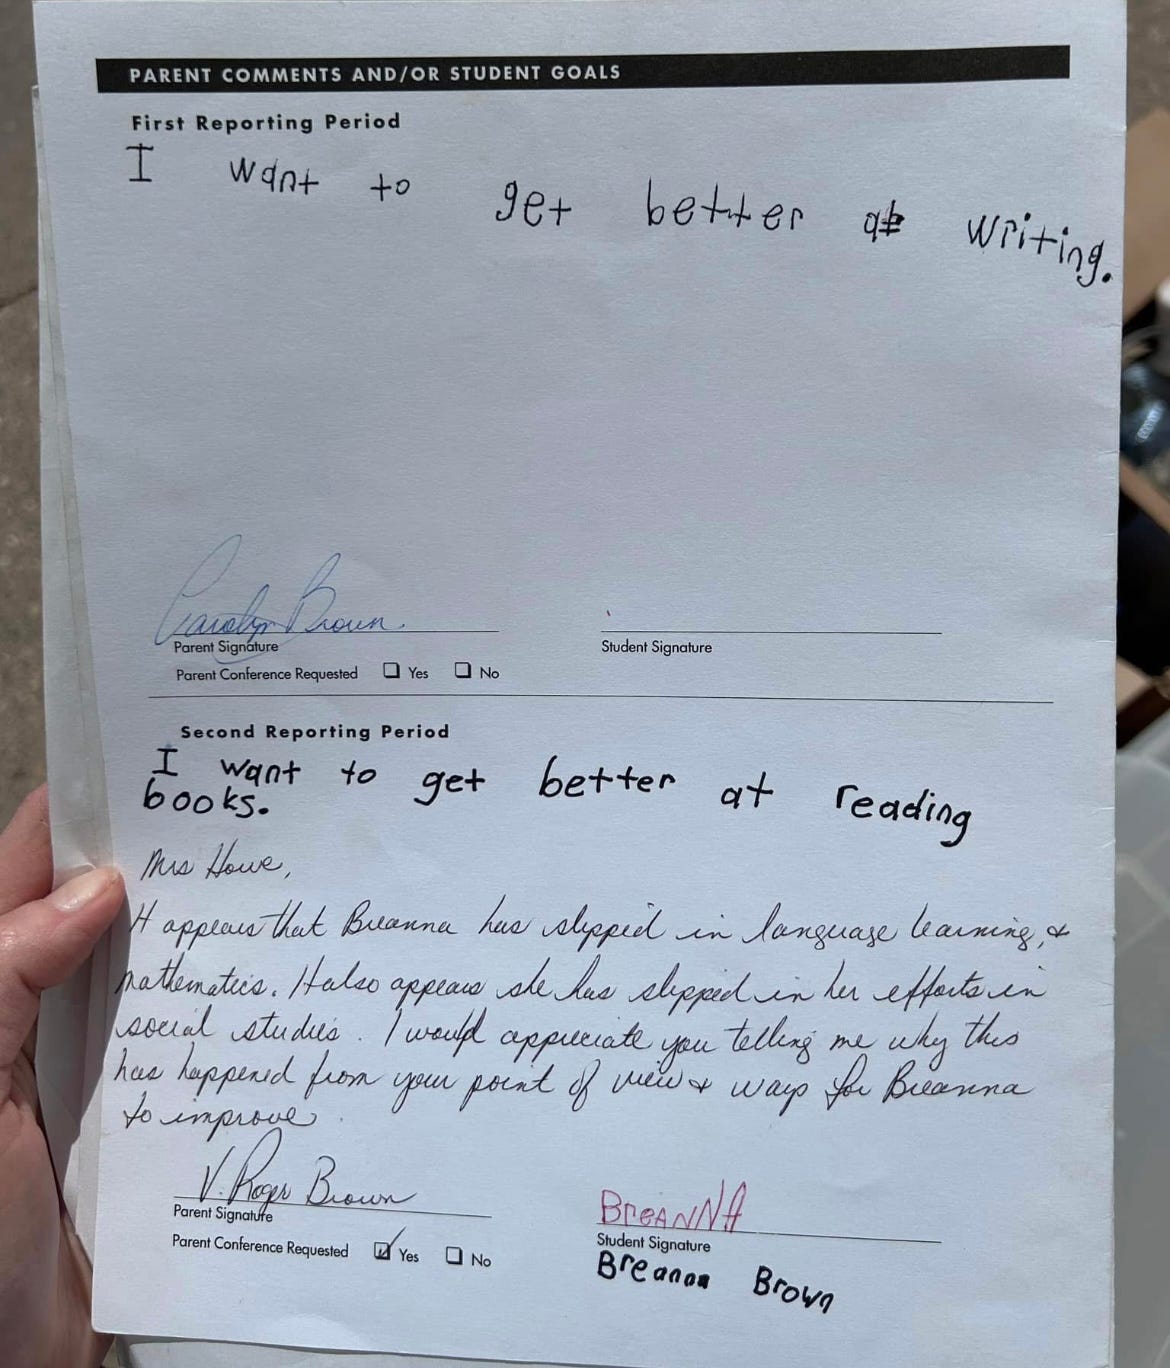 PARENT COMMENTS AND/OR STUDENT GOALS
First Reporting Period
I want to get better at writing.
Carolyn Brown
Parent Signature
Student Signature
Parent Conference Requested Yes No
Second Reporting Period
I want to get better at reading
books.
Mrs Howe,
It appears that Breanna has slipped in language learning, &
mathematics. It also appears she has slipped in her efforts in
social studies. I would appreciate you telling me why this
has happened from your point of view & ways for Breanna
to improve.
V. Roger Brown
BreANNA
Parent Signature
Student Signature
Parent Conference Requested Yes No
Breanna Brown